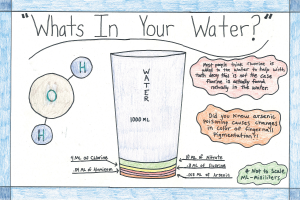 "Whats In Your Water?"
Most people think Fluorine is
added to the water to help with
tooth decay this is not the case
Fluorine is actually found
naturally in the water.
H
O
H
WATER
1000 ML
Did you know arsenic
poisoning causes changes
in color of fingernail
Pigmentation?!
4 ML of Chlorine
10 ML of Nitrate
.010 ML of Arsenic
* Not to Scale
ML - Milliliters